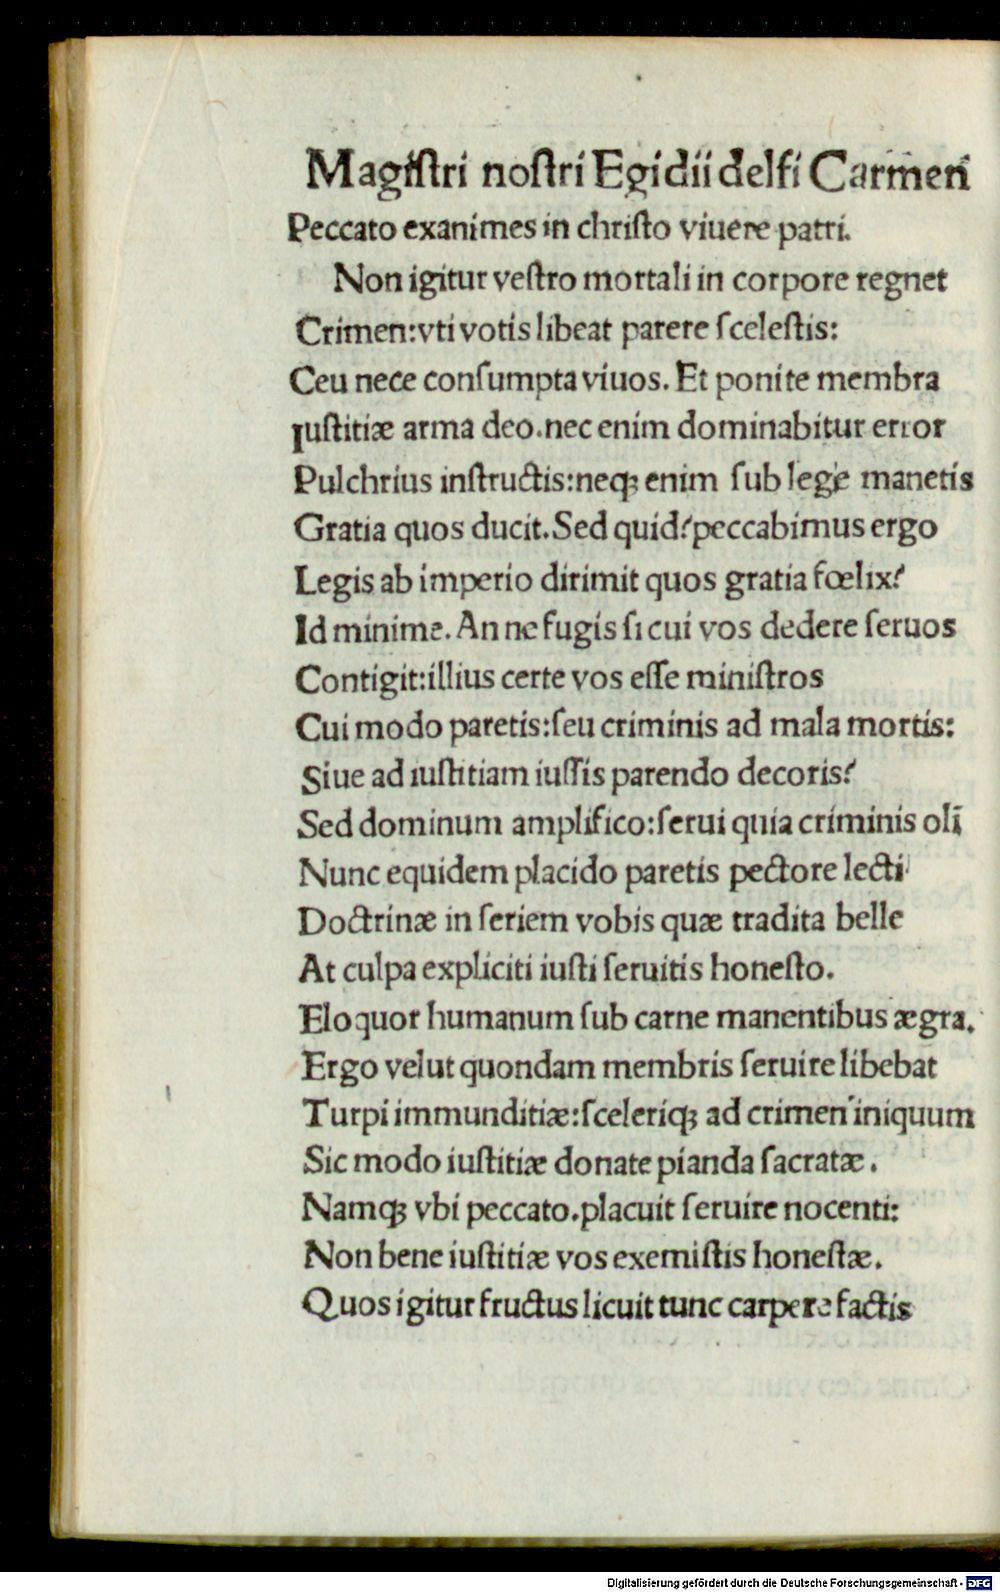 Magiſtri noſtri Egidii delfi Carmen
Peccato exanimes in chriſto viuere patri.
Non igitur veſtro mortali in corpore regnet
Crimen:vti votis libeat parere ſceleſtis:
Ceu nece conſumpta viuos. Et ponite membra
Iuſtitiæ arma deo.nec enim dominabitur error
Pulchrius inſtructis:neqꝫ enim ſub lege manetis
Gratia quos ducit. Sed quid?peccabimus ergo
Legis ab imperio dirimit quos gratia fœlix?
Id minime. An ne fugis ſi cui vos dedere ſeruos
Contigit:illius certe vos eſſe miniſtros
Cui modo paretis:ſeu criminis ad mala mortis:
Siue ad iuſtitiam iuſſis parendo decoris?
Sed dominum amplifico:ſerui quia criminis oli̅
Nunc equidem placido paretis pectore lecti
Doctrinæ in ſeriem vobis quæ tradita belle
At culpa expliciti iuſti ſeruitis honeſto.
Eloquor humanum ſub carne manentibus ægra.
Ergo velut quondam membris ſeruire libebat
Turpi immunditiæ:ſceleriqꝫ ad crimen iniquum
Sic modo iuſtitiæ donate pianda ſacratæ.
Namqꝫ vbi peccato.placuit ſeruire nocenti:
Non bene iuſtitiæ vos exemiſtis honeſtæ.
Quos igitur fructus licuit tunc carpere factis
Digitalisierung gefördert durch die Deutsche Forschungsgemeinschaft - DFG